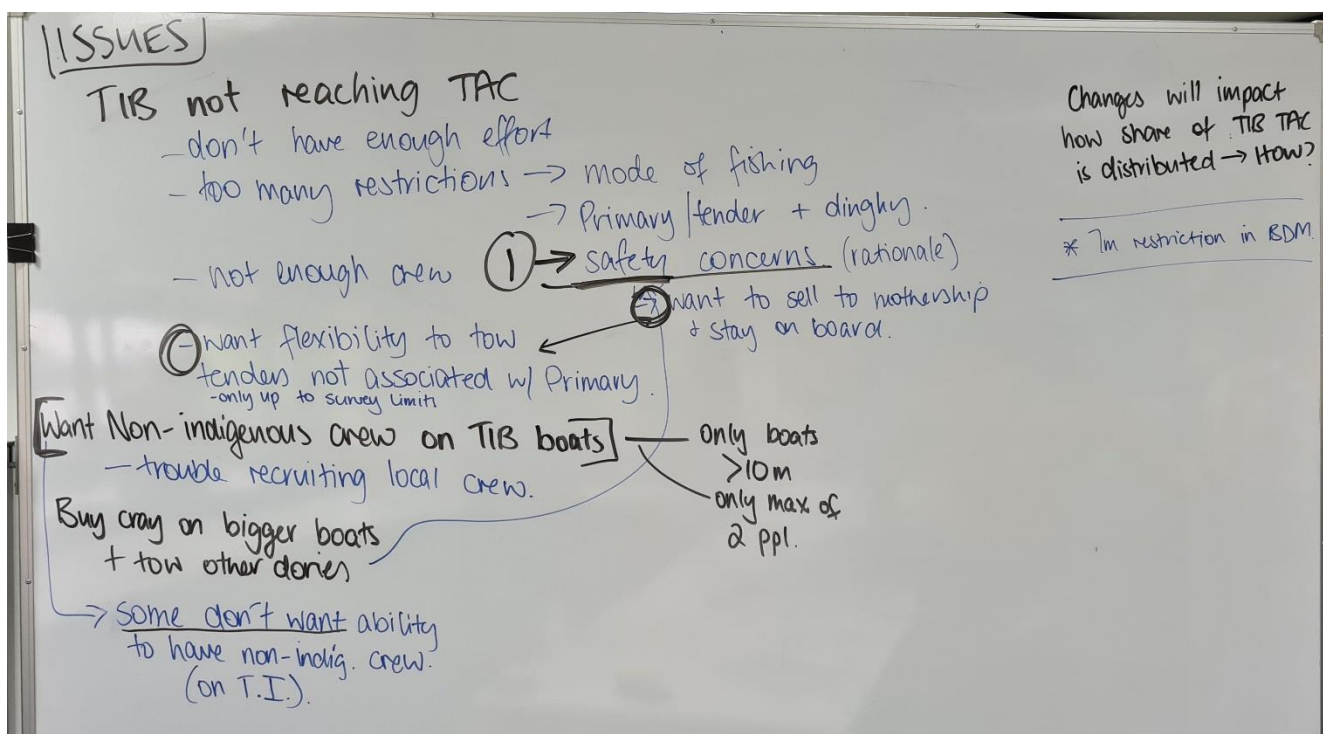 ISSUES
TIB not reaching TAC
- don't have enough effort
- too many restrictions → mode of fishing
→ Primary/tender + dinghy.
- not enough crew ① → safety concerns (rationale)
→ want to sell to mothership
+ stay on board.
- want flexibility to tow
tenders not associated w/ Primary.
- only up to survey limits
[Want Non-indigenous crew on TIB boats]
- trouble recruiting local crew.
only boats
>10m
only max of
2 ppl.
Buy cray on bigger boats
+ tow other dories
→ some don't want ability
to have non-indig. crew.
(on T.I.).
Changes will impact
how share of TIB TAC
is distributed → How?
* 7m restriction in BDM.